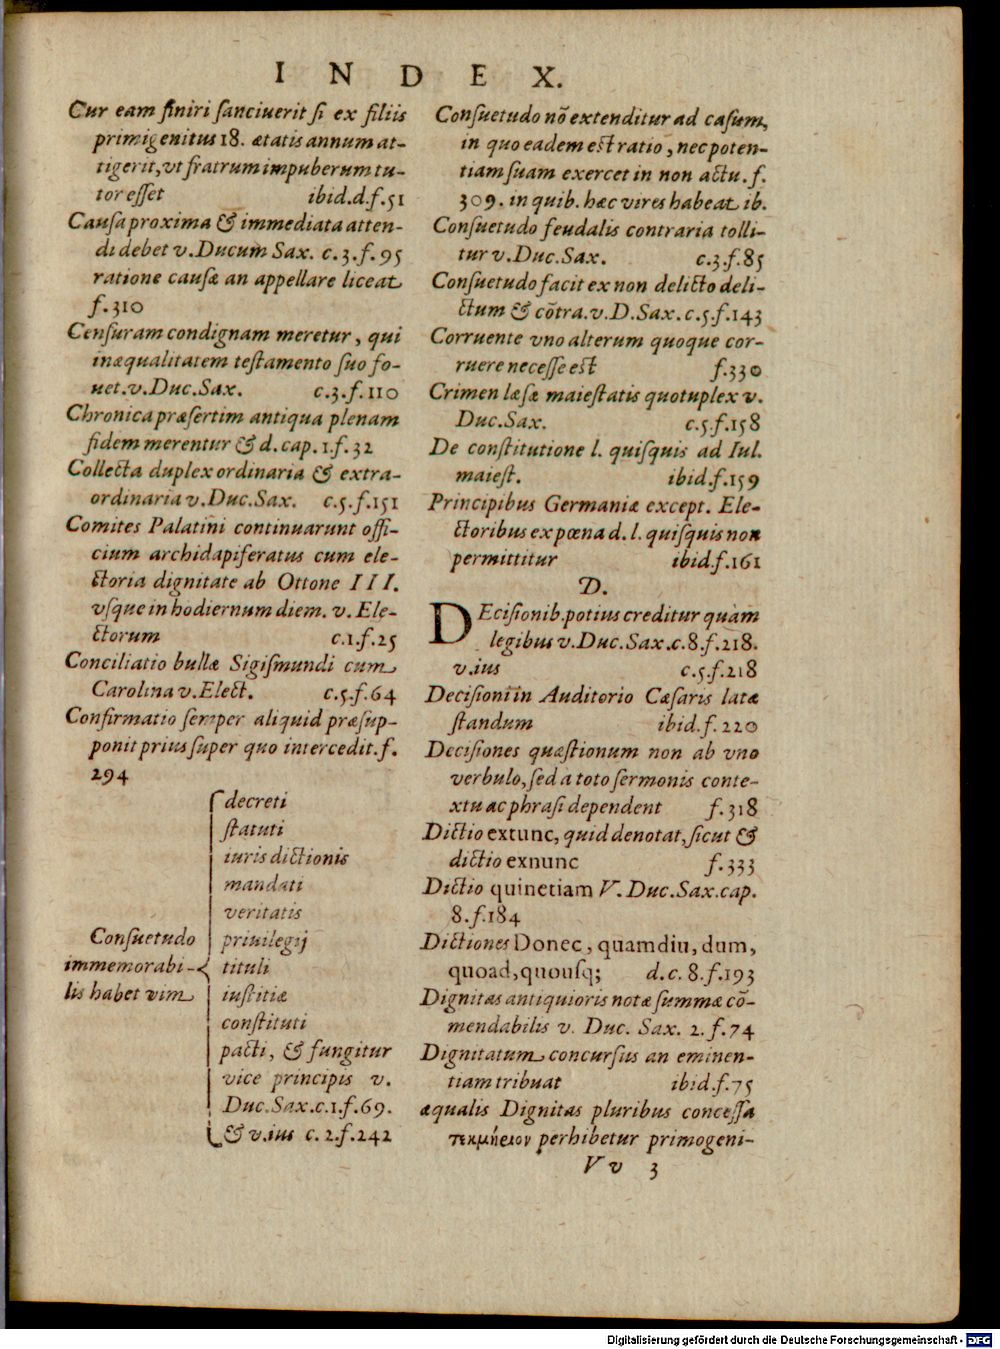 INDEX.
Cur eam finiri sanciuerit si ex filiis
primigenitus 18. ætatis annum at-
tigerit, vt fratrum impuberum tu-
tor esset ibid. d. f. 51
Causa proxima & immediata atten-
di debet v. Ducum Sax. c. 3. f. 95
ratione causæ an appellare liceat
f. 310
Censuram condignam meretur, qui
inæqualitatem testamento suo fo-
uet. v. Duc. Sax. c. 3. f. 110
Chronica præsertim antiqua plenam
fidem merentur & d. cap. 1. f. 32
Collecta duplex ordinaria & extra-
ordinaria v. Duc. Sax. c. 5. f. 151
Comites Palatini continuarunt offi-
cium archidapiferatus cum ele-
ctoria dignitate ab Ottone III.
vsque in hodiernum diem. v. Ele-
ctorum c. 1. f. 25
Conciliatio bullæ Sigismundi cum
Carolina v. Elect. c. 5. f. 64
Confirmatio semper aliquid præsup-
ponit prius super quo intercedit. f.
294
Consuetudo
immemorabi-
lis habet vim
decreti
statuti
iuris dictionis
mandati
veritatis
priuilegij
tituli
iustitiæ
constituti
pacti, & fungitur
vice principis v.
Duc. Sax. c. 1. f. 69.
& v. ius c. 2. f. 242
Consuetudo nō extenditur ad casum,
in quo eadem est ratio, nec poten-
tiam suam exercet in non actu. f.
309. in quib. hæc vires habeat ib.
Consuetudo feudalis contraria tolli-
tur v. Duc. Sax. c. 3. f. 85
Consuetudo facit ex non delicto deli-
ctum & cōtra. v. D. Sax. c. 5. f. 143
Corruente vno alterum quoque cor-
ruere necesse est f. 330
Crimen læsæ maiestatis quotuplex v.
Duc. Sax. c. 5. f. 158
De constitutione l. quisquis ad Iul.
maiest. ibid. f. 159
Principibus Germaniæ except. Ele-
ctoribus ex pœna d. l. quisquis non
permittitur ibid. f. 161
D.
DEcisionib. potius creditur quàm
legibus v. Duc. Sax. c. 8. f. 218.
v. ius c. 5. f. 218
Decisioni in Auditorio Cæsaris latæ
standum ibid. f. 220
Decisiones quæstionum non ab vno
verbulo, sed a toto sermonis conte-
xtu ac phrasi dependent f. 318
Dictio extunc, quid denotat, sicut &
dictio exnunc f. 333
Dictio quinetiam V. Duc. Sax. cap.
8. f. 184
Dictiones Donec, quamdiu, dum,
quoad, quousq; d. c. 8. f. 193
Dignitas antiquioris notæ summæ cō-
mendabilis v. Duc. Sax. 2. f. 74
Dignitatum concursus an eminen-
tiam tribuat ibid. f. 75
æqualis Dignitas pluribus concessa
τεκμήριον perhibetur primogeni-
Vv 3
Digitalisierung gefördert durch die Deutsche Forschungsgemeinschaft - DFG